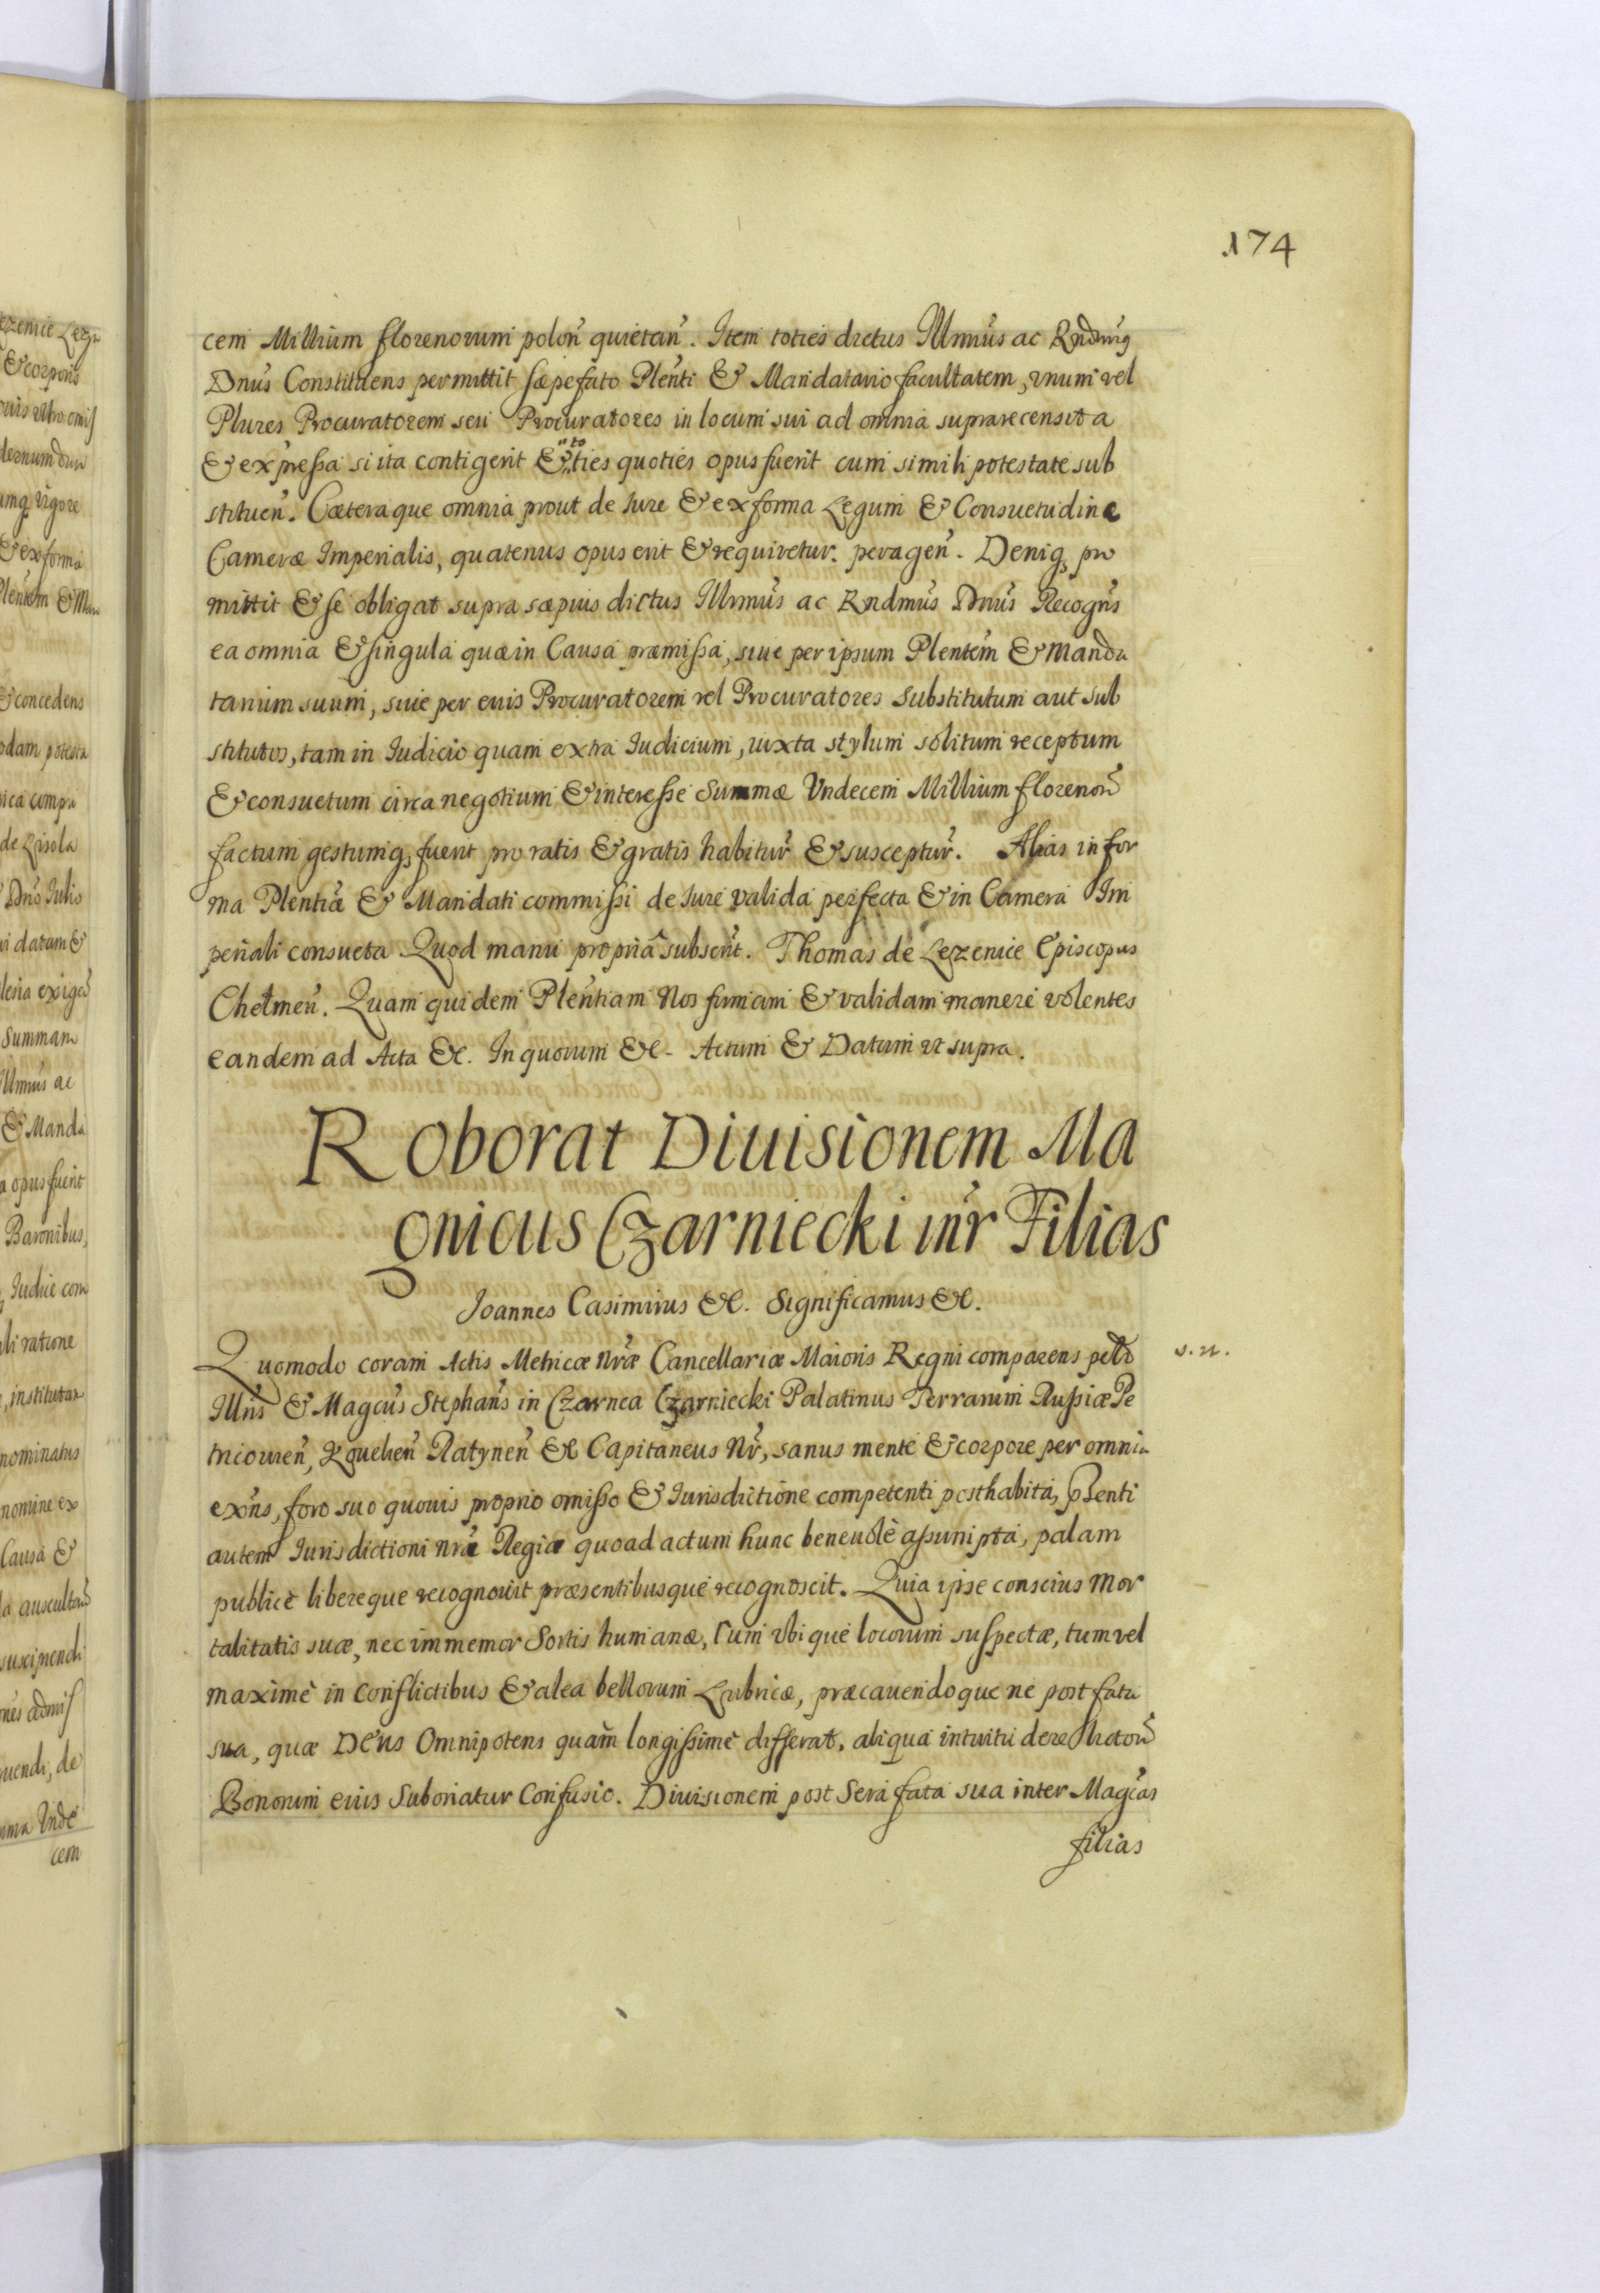 174
cem Millium florenorum polon̄ quietan̄. Item toties dictus Illm̄us ac Rndm̄us
Dnūs Constituens permittit sæpefato Plen̄ti & Mandatario facultatem, vnum vel
Plures Procuratorem seu Procuratores in locum sui ad omnia suprarecensita
& expressa si ita contigerit & toties quoties opus fuerit cum simili potestate sub
stituen̄. Cæteraque omnia prout de Iure & ex forma Legum & Consuetudine
Cameræ Imperialis, quatenus opus erit & requiretur. peragen̄. Deniq, pro
mittit & se obligat supra sæpius dictus Illm̄us ac Rndm̄us Dnūs Recogn̄s
ea omnia & singula quæ in Causa præmissa, siue per ipsum Plen̄tem & Manda
tarium suum, siue per eius Procuratorem vel Procuratores Substitutum aut Sub
stitutos, tam in Iudicio quam extra Iudicium, iuxta stylum solitum receptum
& consuetum circa negotium & interesse Summæ Vndecem Millium florenor̄
factum gestumq, fuerit pro ratis & gratis habitur̄ & susceptur̄. Alias in for
ma Plen̄tiæ & Mandati commissi de Iure valida perfecta & in Camera Im
periali consueta Quod manu propria subscrīt. Thomas de Lezenice Episcopus
Chełmen̄. Quam quidem Plen̄tiam Nos firmam & validam manere volentes
eandem ad Acta &c. In quorum &c- Actum & Datum vt supra.
Roborat Diuisionem Ma
gnicus Czarniecki int̄r Filias
Joannes Casimirus &c. Significamus &c.
Quomodo coram Actis Metricæ Nr̄æ Cancellariæ Maioris Regni comparens per̄lr s. n.
Illn̄s & Magcūs Stephan̄s in Czarnca Czarniecki Palatinus Terrarum Russiæ Pe
tricouien̄, Kouelien̄ Ratynen̄ &c Capitaneus Nr̄, sanus mente & corpore per omnia
exn̄s, foro suo quouis proprio omisso & Iurisdictione competenti posthabita, p̄senti
autem Iurisdictioni nr̄æ Regiæ quoad actum hunc beneuolè assumpta, palam
publicè libereque recognouit præsentibusque recognoscit. Quia ipse conscius Mor
talitatis suæ, nec immemor Sortis humanæ, Cum vbique locorum suspectæ, tum vel
maximè in conflictibus & alea bellorum Lubricæ, præcauendoque ne post fata
sua, quæ DEus Omnipotens quàm longissimè differat, aliqua intuitu derelictor̄
Bonorum eius Suboriatur Confusio. Diuisionem post Sera fata sua inter Magc̄as
filias